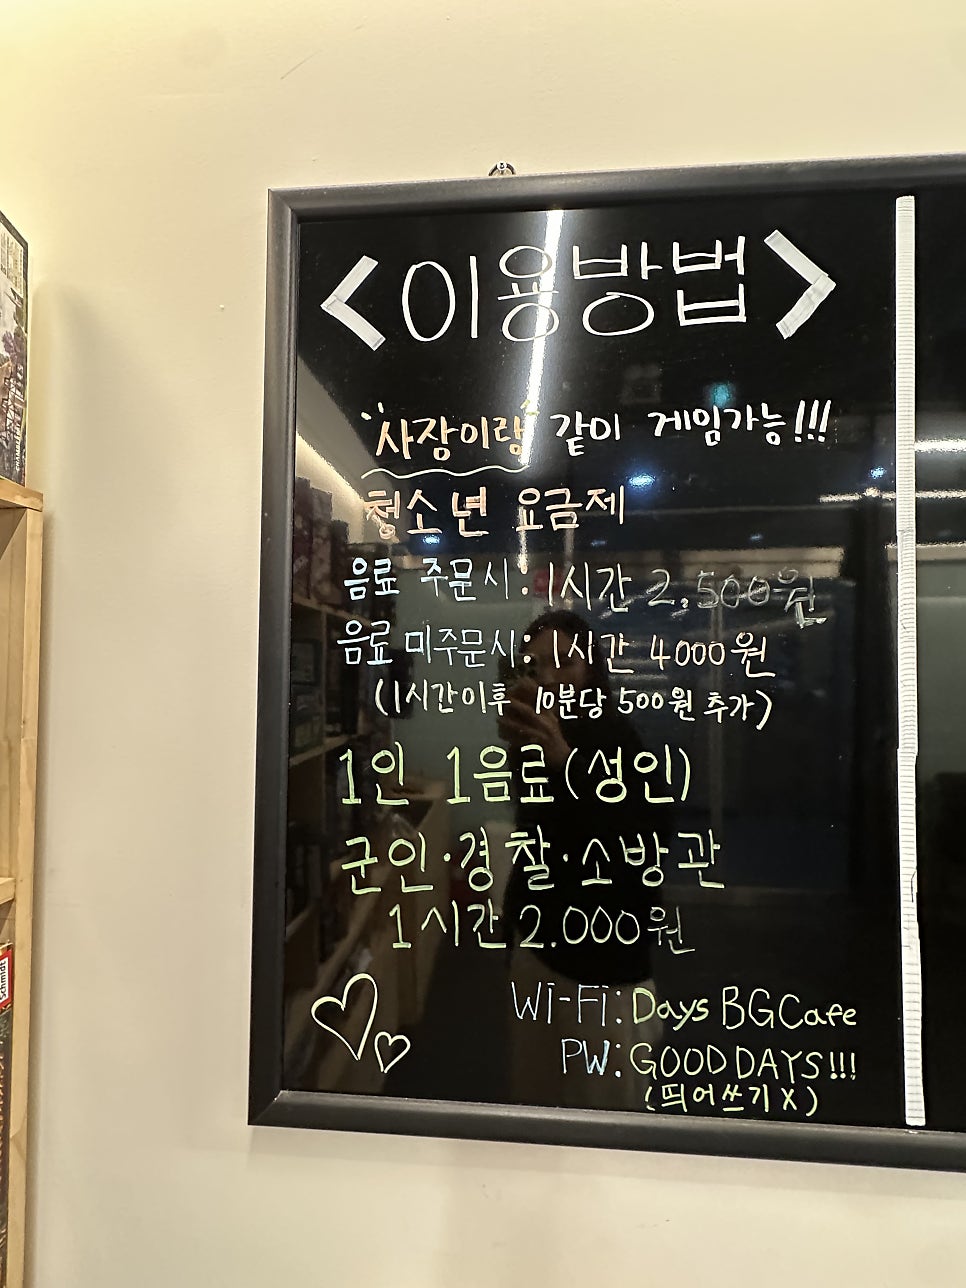 <이용방법>
"사장이랑" 같이 게임가능!!!
청소년 요금제
음료 주문시: 1시간 2,500원
음료 미주문시: 1시간 4000원
(1시간이후 10분당 500원 추가)
1인 1음료(성인)
군인·경찰·소방관
1시간 2.000원
Wi-Fi: Days BGCafe
PW: GOODDAYS!!!
(띄어쓰기 X)
Schmidt